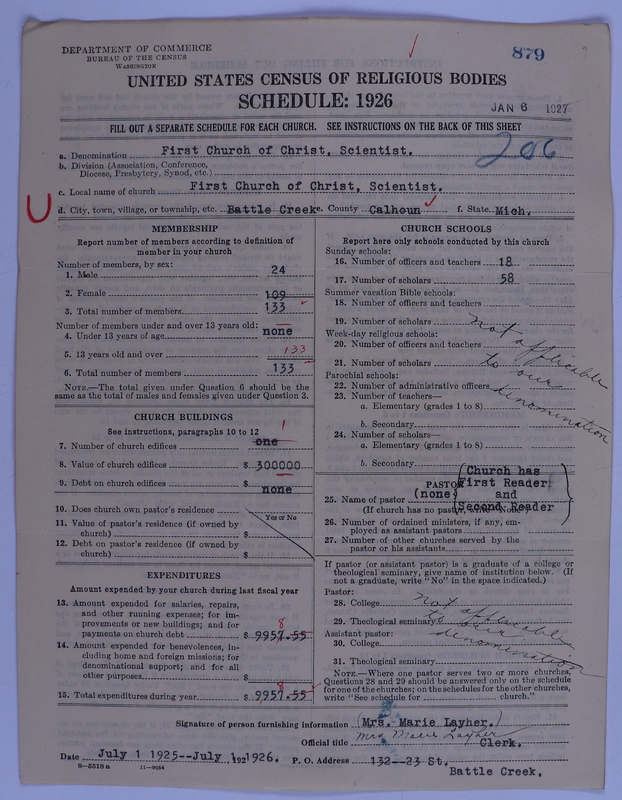 DEPARTMENT OF COMMERCE
BUREAU OF THE CENSUS
WASHINGTON
879
UNITED STATES CENSUS OF RELIGIOUS BODIES
SCHEDULE: 1926
JAN 6 1927
FILL OUT A SEPARATE SCHEDULE FOR EACH CHURCH. SEE INSTRUCTIONS ON THE BACK OF THIS SHEET
206
a. Denomination First Church of Christ, Scientist.
b. Division (Association, Conference,
Diocese, Presbytery, Synod, etc.)
c. Local name of church First Church of Christ, Scientist.
d. City, town, village, or township, etc. Battle Creek e. County Calhoun f. State Mich.
MEMBERSHIP
Report number of members according to definition of
member in your church
Number of members, by sex:
1. Male 24
2. Female 109
3. Total number of members 133
Number of members under and over 13 years old:
4. Under 13 years of age none
5. 13 years old and over 133
6. Total number of members 133
NOTE.—The total given under Question 6 should be the
same as the total of males and females given under Question 3.
CHURCH BUILDINGS
See instructions, paragraphs 10 to 12
1
7. Number of church edifices one
8. Value of church edifices $ 300000
9. Debt on church edifices $ none
10. Does church own pastor's residence
Yes or No
11. Value of pastor's residence (if owned by
church) $
12. Debt on pastor's residence (if owned by
church) $
EXPENDITURES
Amount expended by your church during last fiscal year
13. Amount expended for salaries, repairs,
and other running expenses; for im-
provements or new buildings; and for
payments on church debt $ 9957.55
8
14. Amount expended for benevolences, in-
cluding home and foreign missions; for
denominational support; and for all
other purposes $
15. Total expenditures during year $ 9957.55
8
CHURCH SCHOOLS
Report here only schools conducted by this church
Sunday schools:
16. Number of officers and teachers 18
17. Number of scholars 58
Summer vacation Bible schools:
18. Number of officers and teachers
19. Number of scholars
Week-day religious schools:
20. Number of officers and teachers
21. Number of scholars
Parochial schools:
22. Number of administrative officers
23. Number of teachers—
a. Elementary (grades 1 to 8)
b. Secondary
24. Number of scholars—
a. Elementary (grades 1 to 8)
b. Secondary
not applicable
to our
denomination
PASTOR
25. Name of pastor (none)
(If church has no pastor, write "None")
(Church has
First Reader
and
Second Reader)
26. Number of ordained ministers, if any, em-
ployed as assistant pastors
27. Number of other churches served by the
pastor or his assistants
If pastor (or assistant pastor) is a graduate of a college or
theological seminary, give name of institution below. (If
not a graduate, write "No" in the space indicated.)
Pastor:
28. College
29. Theological seminary
Assistant pastor:
30. College
31. Theological seminary
not applicable
to our
denomination
NOTE.—Where one pastor serves two or more churches,
Questions 28 and 29 should be answered only on the schedule
for one of the churches; on the schedules for the other churches,
write "See schedule for church."
Signature of person furnishing information (Mrs. Marie Layher.)
Mrs Marie Layher
Official title Clerk.
Date July 1 1925--July 1, 1926. P. O. Address 132--23 St.
8—5518 a 11—9054
Battle Creek.